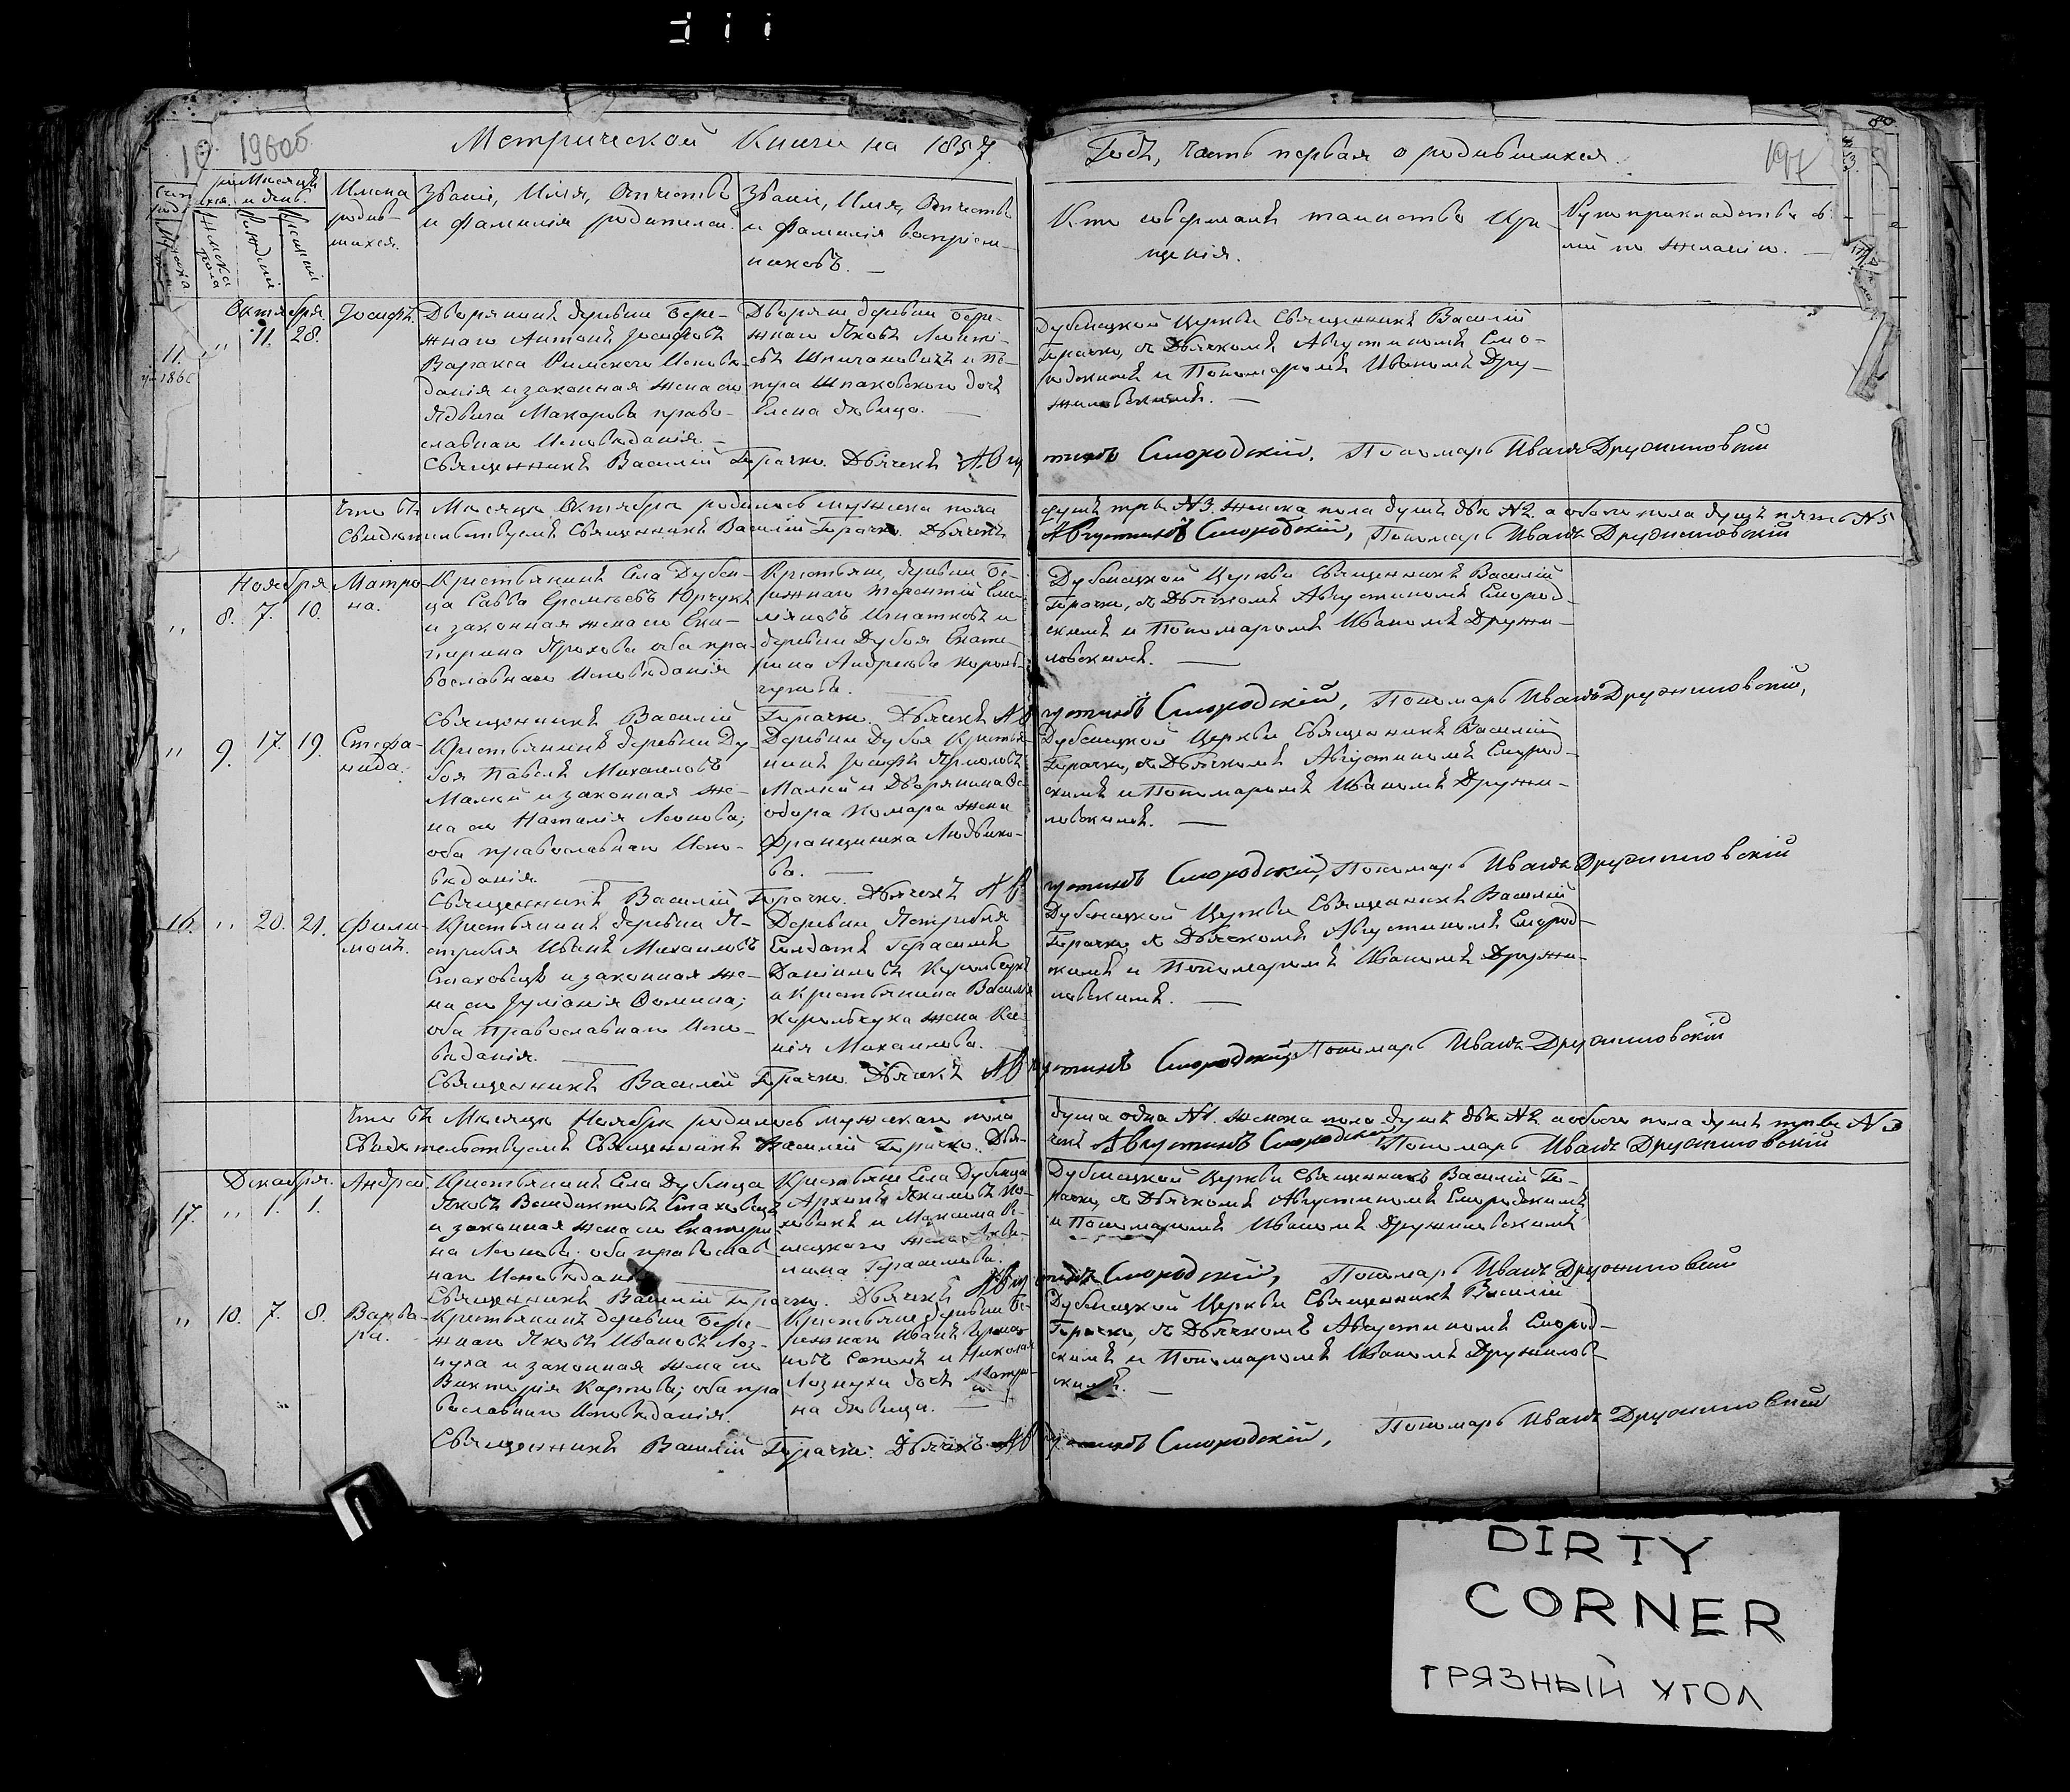 196об
Метрической Книги на 1857.
Годъ, часть первая о родившихся.
197
Имена
родив-
шихся.
Званіе, Имя, Отчество
и фамилія родителей.
Званіе, Имя, Отчество
и фамилія воспріем-
никовъ. —
Кто совершалъ таинство Кре-
щенія.
по желанію. —
Октября.
11. „ 11. 28.
Іосифъ.
Дворянинъ деревни Бере-
жнаго Антонъ Іосифовъ
Варакса Римскаго Исповѣ-
данія и законная жена его
Ядвига Макарова право-
славнаго Исповѣданія. —
Дворяне деревни Бере-
жнаго Яковъ Леонті-
евъ Шпичановичъ и Пе-
тра Шпаковскаго дочь
Елена дѣвица. —
Дубенецкой Церкви Священникъ Василій
Герачко, съ Дьячкомъ Августиномъ Смо-
родскимъ и Пономаремъ Иваномъ Дру-
жиловскимъ. —
Священникъ Василій Герачко. Дьячекъ Авгу
стинъ Смородскій, Пономарь Иванъ Дружиловскій
Что въ Мѣсяцѣ Октябрѣ родилось мужеска пола
душъ три №3. женска пола душъ двѣ №2. а обоего пола душъ пять №5
Свидѣтельствуемъ Священникъ Василій Герачко. Дьячекъ
Августинъ Смородскій, Пономарь Иванъ Дружиловскій
Ноября
„ 8. 7. 10.
Матро-
на.
Крестьянинъ Села Дубен-
ца Савва Еремѣевъ Юрчукъ
и законная жена его Ека-
терина Ярохова оба пра-
вославнаго Исповѣданія
Крестьяне, деревни Бе-
режнаго Терентій Еме-
льяновъ Игнатковъ и
деревни Дубоя Екате-
рина Андреева Король-
чукова.
Дубенецкой Церкви Священникъ Василій
Герачко, съ Дьячкомъ Августиномъ Смород-
скимъ и Пономаремъ Иваномъ Дружи-
ловскимъ. —
Священникъ Василій Герачко. Дьячекъ Ав
густинъ Смородскій, Пономарь Иванъ Дружиловскій,
„ 9. 17. 19.
Стефа-
нида.
Крестьянинъ деревни Ду-
боя Павелъ Михаиловъ
Малюй и законная же-
на его Наталія Леонова;
оба православнаго Испо-
вѣданія. —
Деревни Дубоя Крестья-
нинъ Іосифъ Ярмоловъ
Малюй и Дворянина Ѳе-
одора Комара жена
Франциика Людвико-
ва. —
Дубенецкой Церкви Священникъ Василій
Герачко, съ Дьячкомъ Августиномъ Смород-
скимъ и Пономаремъ Иваномъ Дружи-
ловскимъ. —
Священникъ Василій Герачко. Дьячекъ Ав
густинъ Смородскій, Пономарь Иванъ Дружиловскій
16. „ 20. 21.
Фили-
монъ.
Крестьянинъ деревни Я-
стребля Иванъ Михаиловъ
Стаховецъ и законная же-
на его Іуліанія Ѳомина;
оба Православнаго Испо-
вѣданія. —
Деревни Ястребля
Солдатъ Герасимъ
Даніиловъ Корольчукъ
и Крестьянина Василія
Корольчука жена Ксе-
нія Михаилова. —
Дубенецкой Церкви Священникъ Василій
Герачко съ Дьячкомъ Августиномъ Смород-
скимъ и Пономаремъ Иваномъ Дружи-
ловскимъ. —
Священникъ Василій Герачко. Дьячекъ Ав
густинъ Смородскій, Пономарь Иванъ Дружиловскій
Что въ Мѣсяцѣ Ноябрѣ родилось мужескаго пола
душа одна №1. женска пола душъ двѣ №2 а обоего пола душъ три №3
Свидѣтельствуемъ Священникъ Василій Герачко. Дья-
чекъ Августинъ Смородскій, Пономарь Иванъ Дружиловскій
Декабря.
17. „ 1. 1.
Андрей.
Крестьянинъ Села Дубенца
Яковъ Венедиктовъ Стаховецъ
и законная жена его Екатери-
на Леонова; оба православ-
наго Исповѣданія. —
Крестьяне Села Дубенца
Архипъ Якимовъ
и Максима
жена Акви-
лина Герасимова.
Дубенецкой Церкви Священникъ Василій Ге-
рачко, съ Дьячкомъ Августиномъ Смородскимъ
и Пономаремъ Иваномъ Дружиловскимъ
Священникъ Василій Герачко. Дьячекъ Авгу
стинъ Смородскій, Пономарь Иванъ Дружиловскій
„ 10. 7. 8.
Варва-
ра.
Крестьянинъ деревни Бере-
жнаго Яковъ Ивановъ Лоз-
нуха и законная жена его
Викторія Карпова; оба пра-
вославнаго Исповѣданія.
Крестьяне деревни Бе-
режнаго Иванъ
и Николая
Лознухи дочь Матро-
на дѣвица. —
Дубенецкой Церкви Священникъ Василій
Герачко, съ Дьячкомъ Августиномъ Смород-
скимъ и Пономаремъ Иваномъ Дружилов-
скимъ. —
Священникъ Василій Герачко. Дьячекъ Ав
густинъ Смородскій, Пономарь Иванъ Дружиловскій
DIRTY
CORNER
ГРЯЗНЫЙ УГОЛ